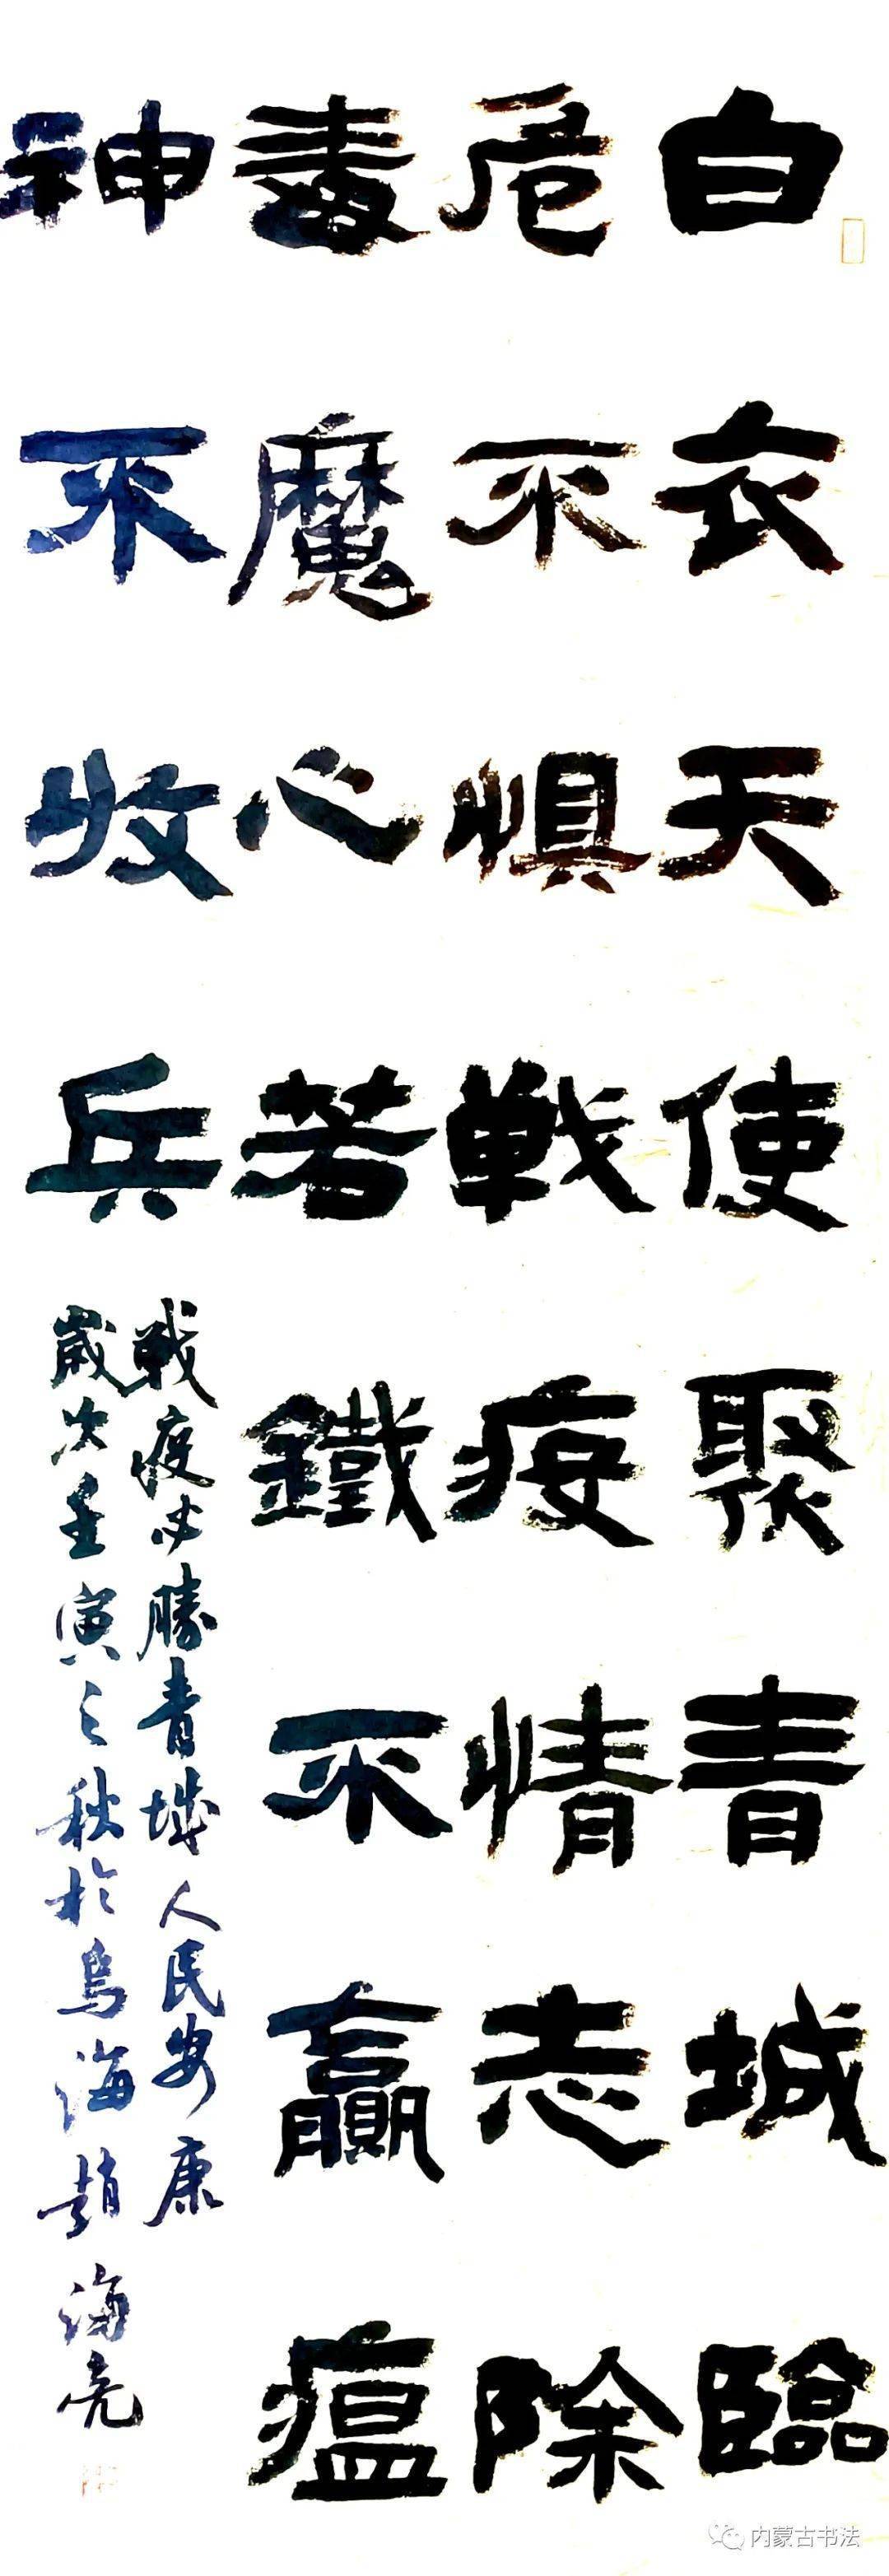 白衣天使聚青城臨
危不惧戦疫情志除
毒魔心若鐵不贏瘟
神不收兵
戦疫必勝青城人民安康
歲次壬寅之秋於烏海趙海亮
内蒙古书法